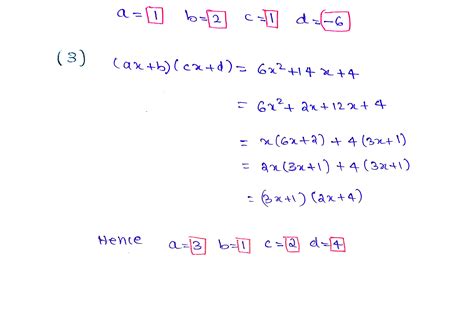 a=1 b=2 c=1 d=-6
(3) (ax+b)(cx+d) = 6x²+14x+4
= 6x²+2x+12x+4
= x(6x+2)+4(3x+1)
= 2x(3x+1)+4(3x+1)
= (3x+1)(2x+4)
Hence a=3 b=1 c=2 d=4